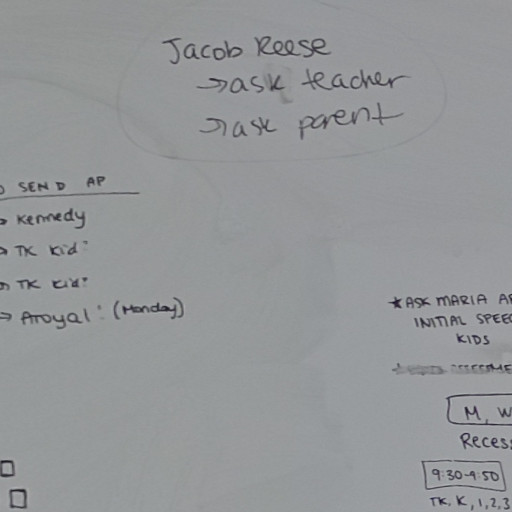 Jacob Reese
→ask teacher
→ask parent
SEND AP
→ Kennedy
→ TK Kid?
→ TK Kid?
→ Aroyal: (Monday)
★ASK MARIA
INITIAL
KIDS
M, W
9:30-9:50
TK, K, 1, 2, 3